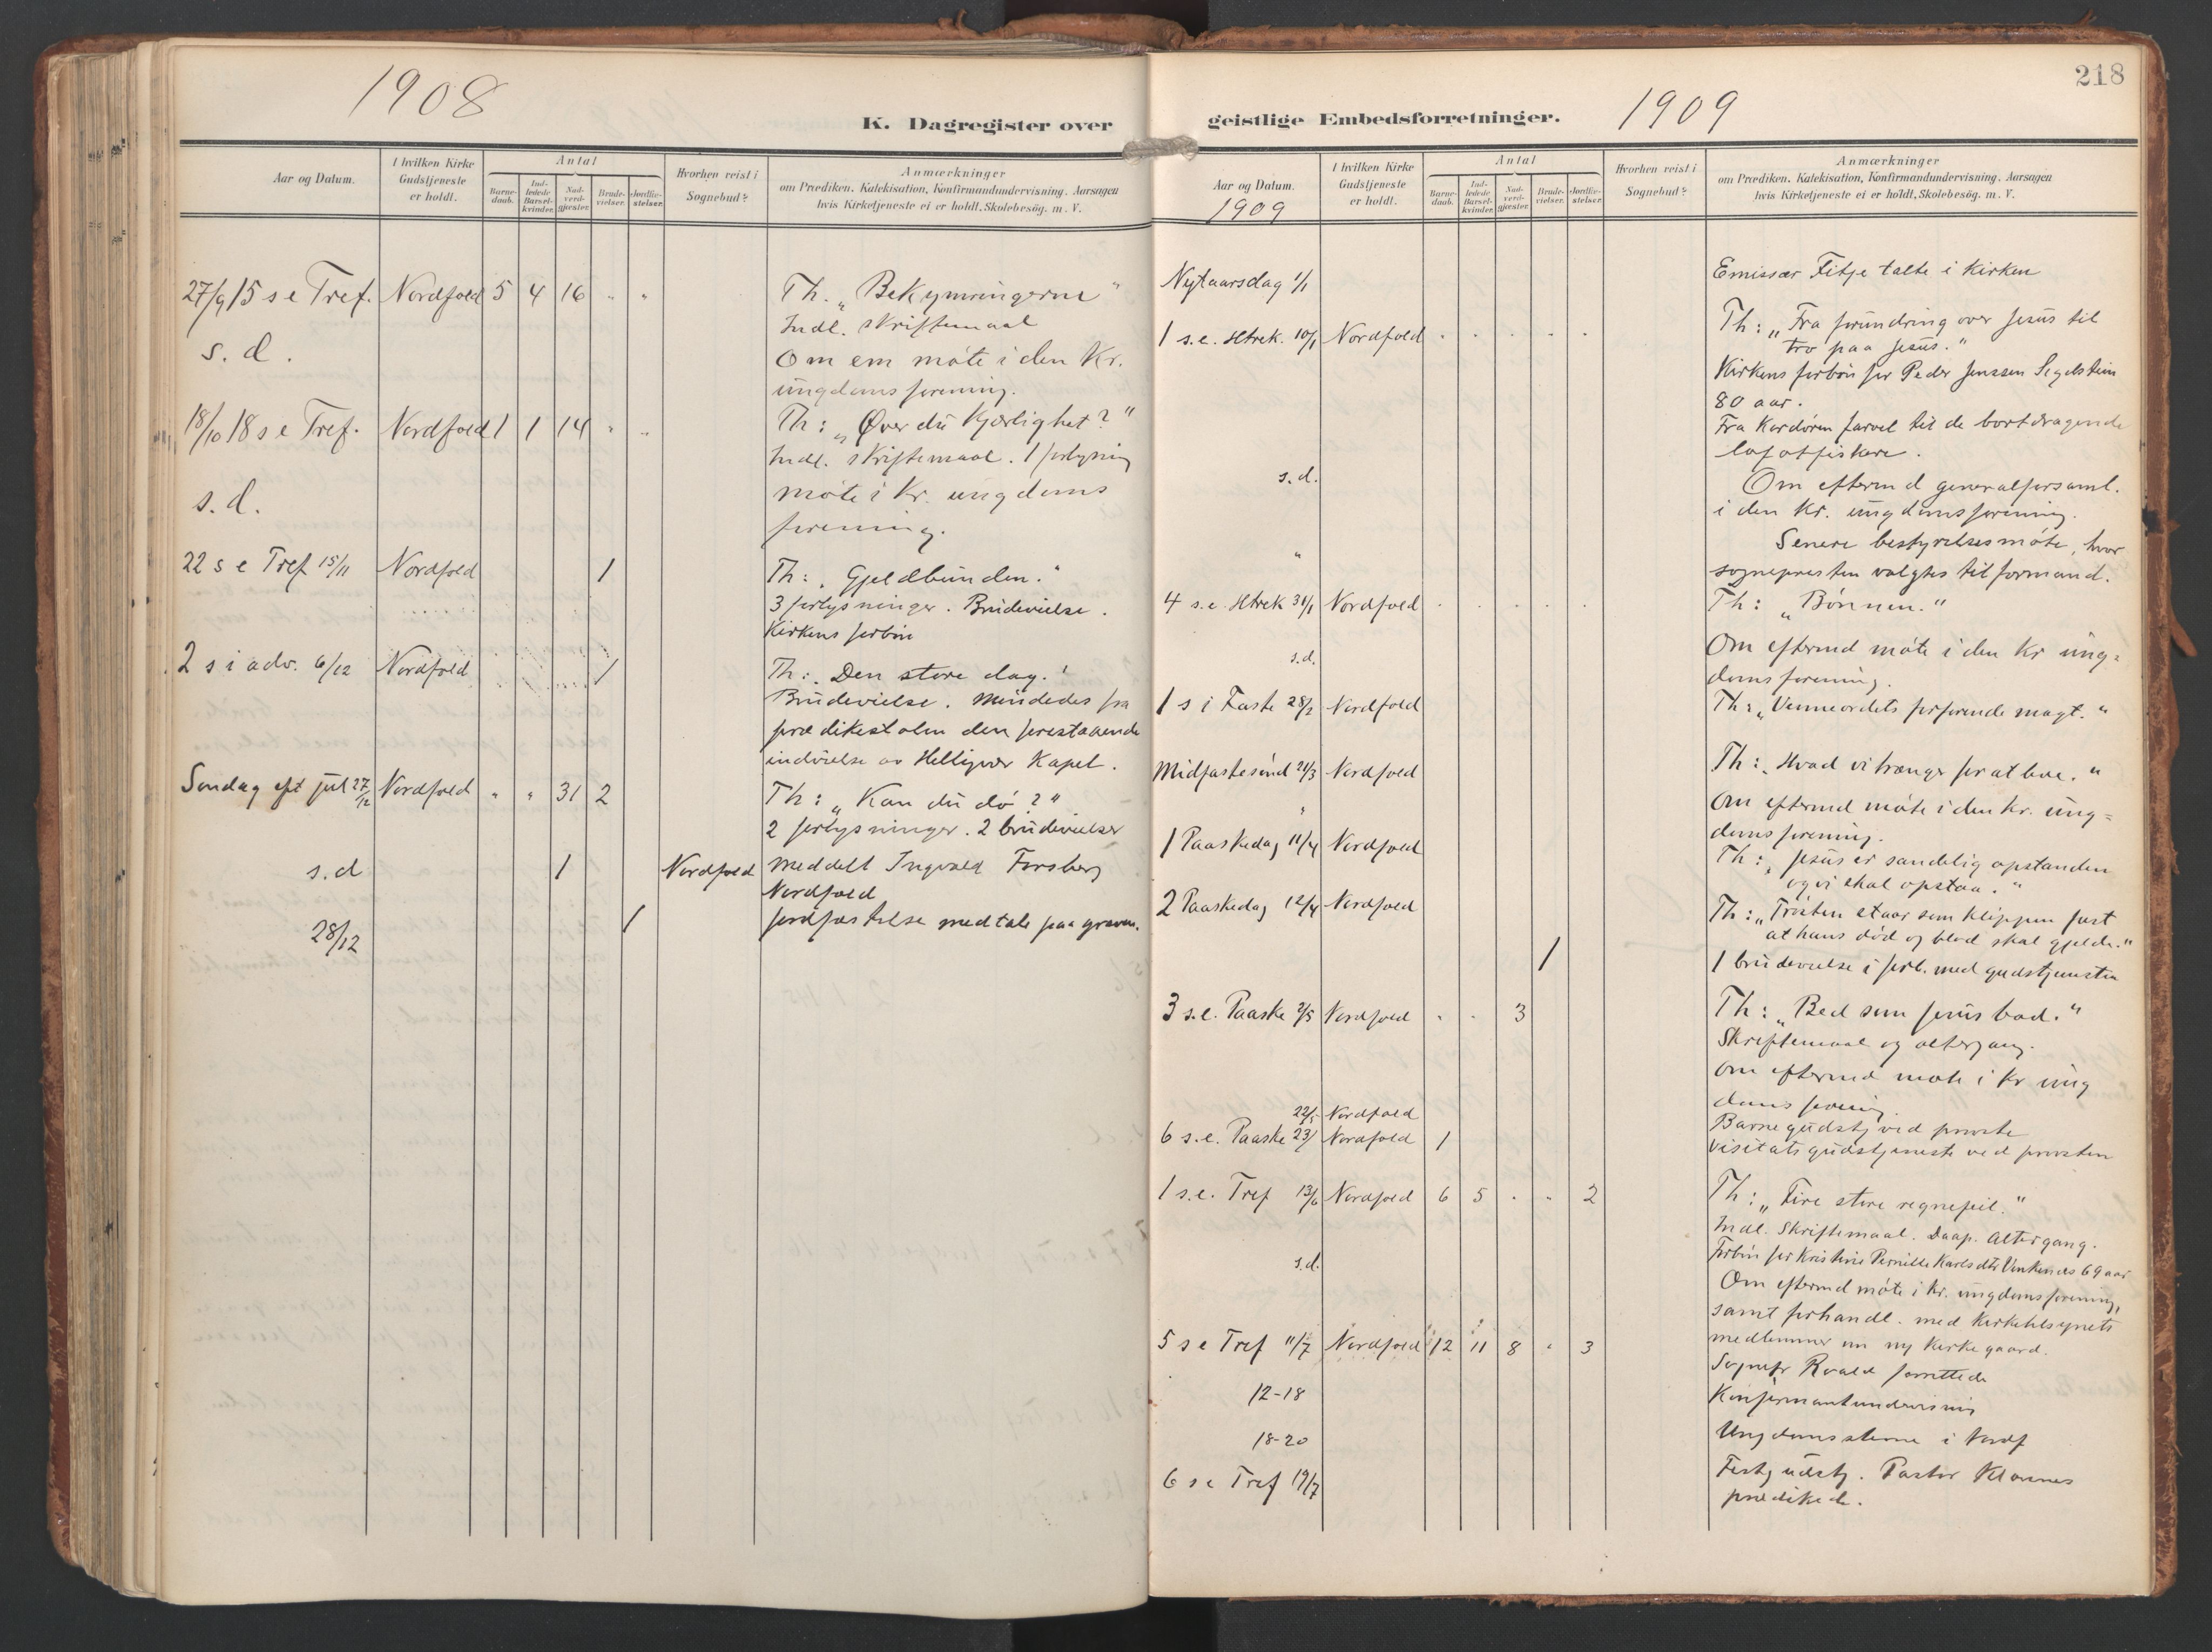 1908
K. Dagregister over
Aar og Datum.
I hvilken Kirke Gudstjeneste er holdt.
Antal
Barnedaab.
Indledede Barselkvinder.
Nadverdgjester.
Brudevielser.
Jordfæstelser.
Hvorhen reist i Sognebud?
Anmærkninger
om Prædiken, Katekisation, Konfirmandundervisning, Aarsagen
hvis Kirketjeneste ei er holdt, Skolebesøg. m. V.
27/9 15 s e Tref. Nordfold 5 4 16 " " Th. "Bekymringerne"
Indl. skriftemaal
s. d. Om em møte i den Kr.
ungdomsforening.
18/10 18 s e Tref. Nordfold 1 1 14 " " Th: "Øver du Kjærlighet?"
Indl. skriftemaal. 1 forlysning
s. d. møte i Kr. ungdoms
forening.
22 s e Tref 15/11 Nordfold 1 Th: "Gjeldbunden."
3 forlysninger. Brudevielse.
Kirkens forbøn
2 s i adv. 6/12 Nordfold 1 Th: "Den store dag."
Brudevielse. Mindedes fra
prædikestolen den forestaaende
indvielse av Helligvær Kapel.
Søndag eft jul 27/12 Nordfold " " 31 2 Th: "Kan du dø?"
2 forlysninger. 2 brudevielser
s. d 1 Nordfold meddelt Ingvald Forsberg
Nordfold
28/12 1 Jordfæstelse med tale paa graven.
218
geistlige Embedsforretninger.
1909
Aar og Datum.
1909
I hvilken Kirke Gudstjeneste er holdt.
Antal
Barnedaab.
Indledede Barselkvinder.
Nadverdgjester.
Brudevielser.
Jordfæstelser.
Hvorhen reist i Sognebud?
Anmærkninger
om Prædiken, Katekisation, Konfirmandundervisning, Aarsagen
hvis Kirketjeneste ei er holdt, Skolebesøg. m. V.
Nytaarsdag 1/1 Emissær Fitje talte i Kirken
1 s. e. Htrek. 10/1 Nordfold . . . . . Th: "Fra forundring over Jesus til
tro paa Jesus."
Kirkens forbøn for Peder Jenssen
80 aar.
Fra Kordøren farvel til de bortdragende
lofotfiskere.
s. d. Om eftermd generalforsaml.
i den Kr. ungdomsforening.
" Senere bestyrelsesmøte, hvor
sognepresten valgtes til formand.
4 s. e. Htrek 31/1 Nordfold . . . . . Th: "Bønnen."
s. d. Om eftermd møte i den Kr ung=
domsforening.
1 s i Faste 28/2 Nordfold Th: "Vinneordets magt."
Midfastesønd 21/3 Nordfold Th: "Hvad vi trænger for at leve."
" Om eftermd møte i den kr. ung=
domsforening.
1 Paaskedag 11/4 Nordfold Th: "Jesus er sandelig opstanden
og vi skal opstaa."
2 Paaskedag 12/4 Nordfold Th: "Trøsten staar som klippen fast
at hans død og blod skal gjelde."
1 1 brudevielse i forb. med gudstjenesten
3 s. e. Paaske 2/5 Nordfold . . 3 Th: "Bed som Jesus bad."
Skriftemaal og altergang.
Om eftermd møte i Kr ung
doms forening.
22/5 Nordfold Barnegudstj ved provste
6 s. e. Paaske 23/ Nordfold 1 visitatsgudstjeneste ved provsten
1 s. e. Tref 13/6 Nordfold 6 5 . " 2 Th: "Fire store regnefeil."
Indl. Skriftemaal. Daap. Altergang.
Forbøn for Kristine Pernille Karlsdtr 69 aar
s. d. Om eftermd møte i Kr. ungdomsforening,
samt forhandl. med Kirketilsynets
medlemmer om ny Kirkegaard.
5 s e Tref 11/7 Nordfold 12 11 8 " 3 Sognepr Roald forrettede
12-18 Konfirmantundervisning
18-20 Ungdomsstevne i Nordf
6 s e Tref 19/7 Festgudstj. Pastor Klaunes
prædikede.